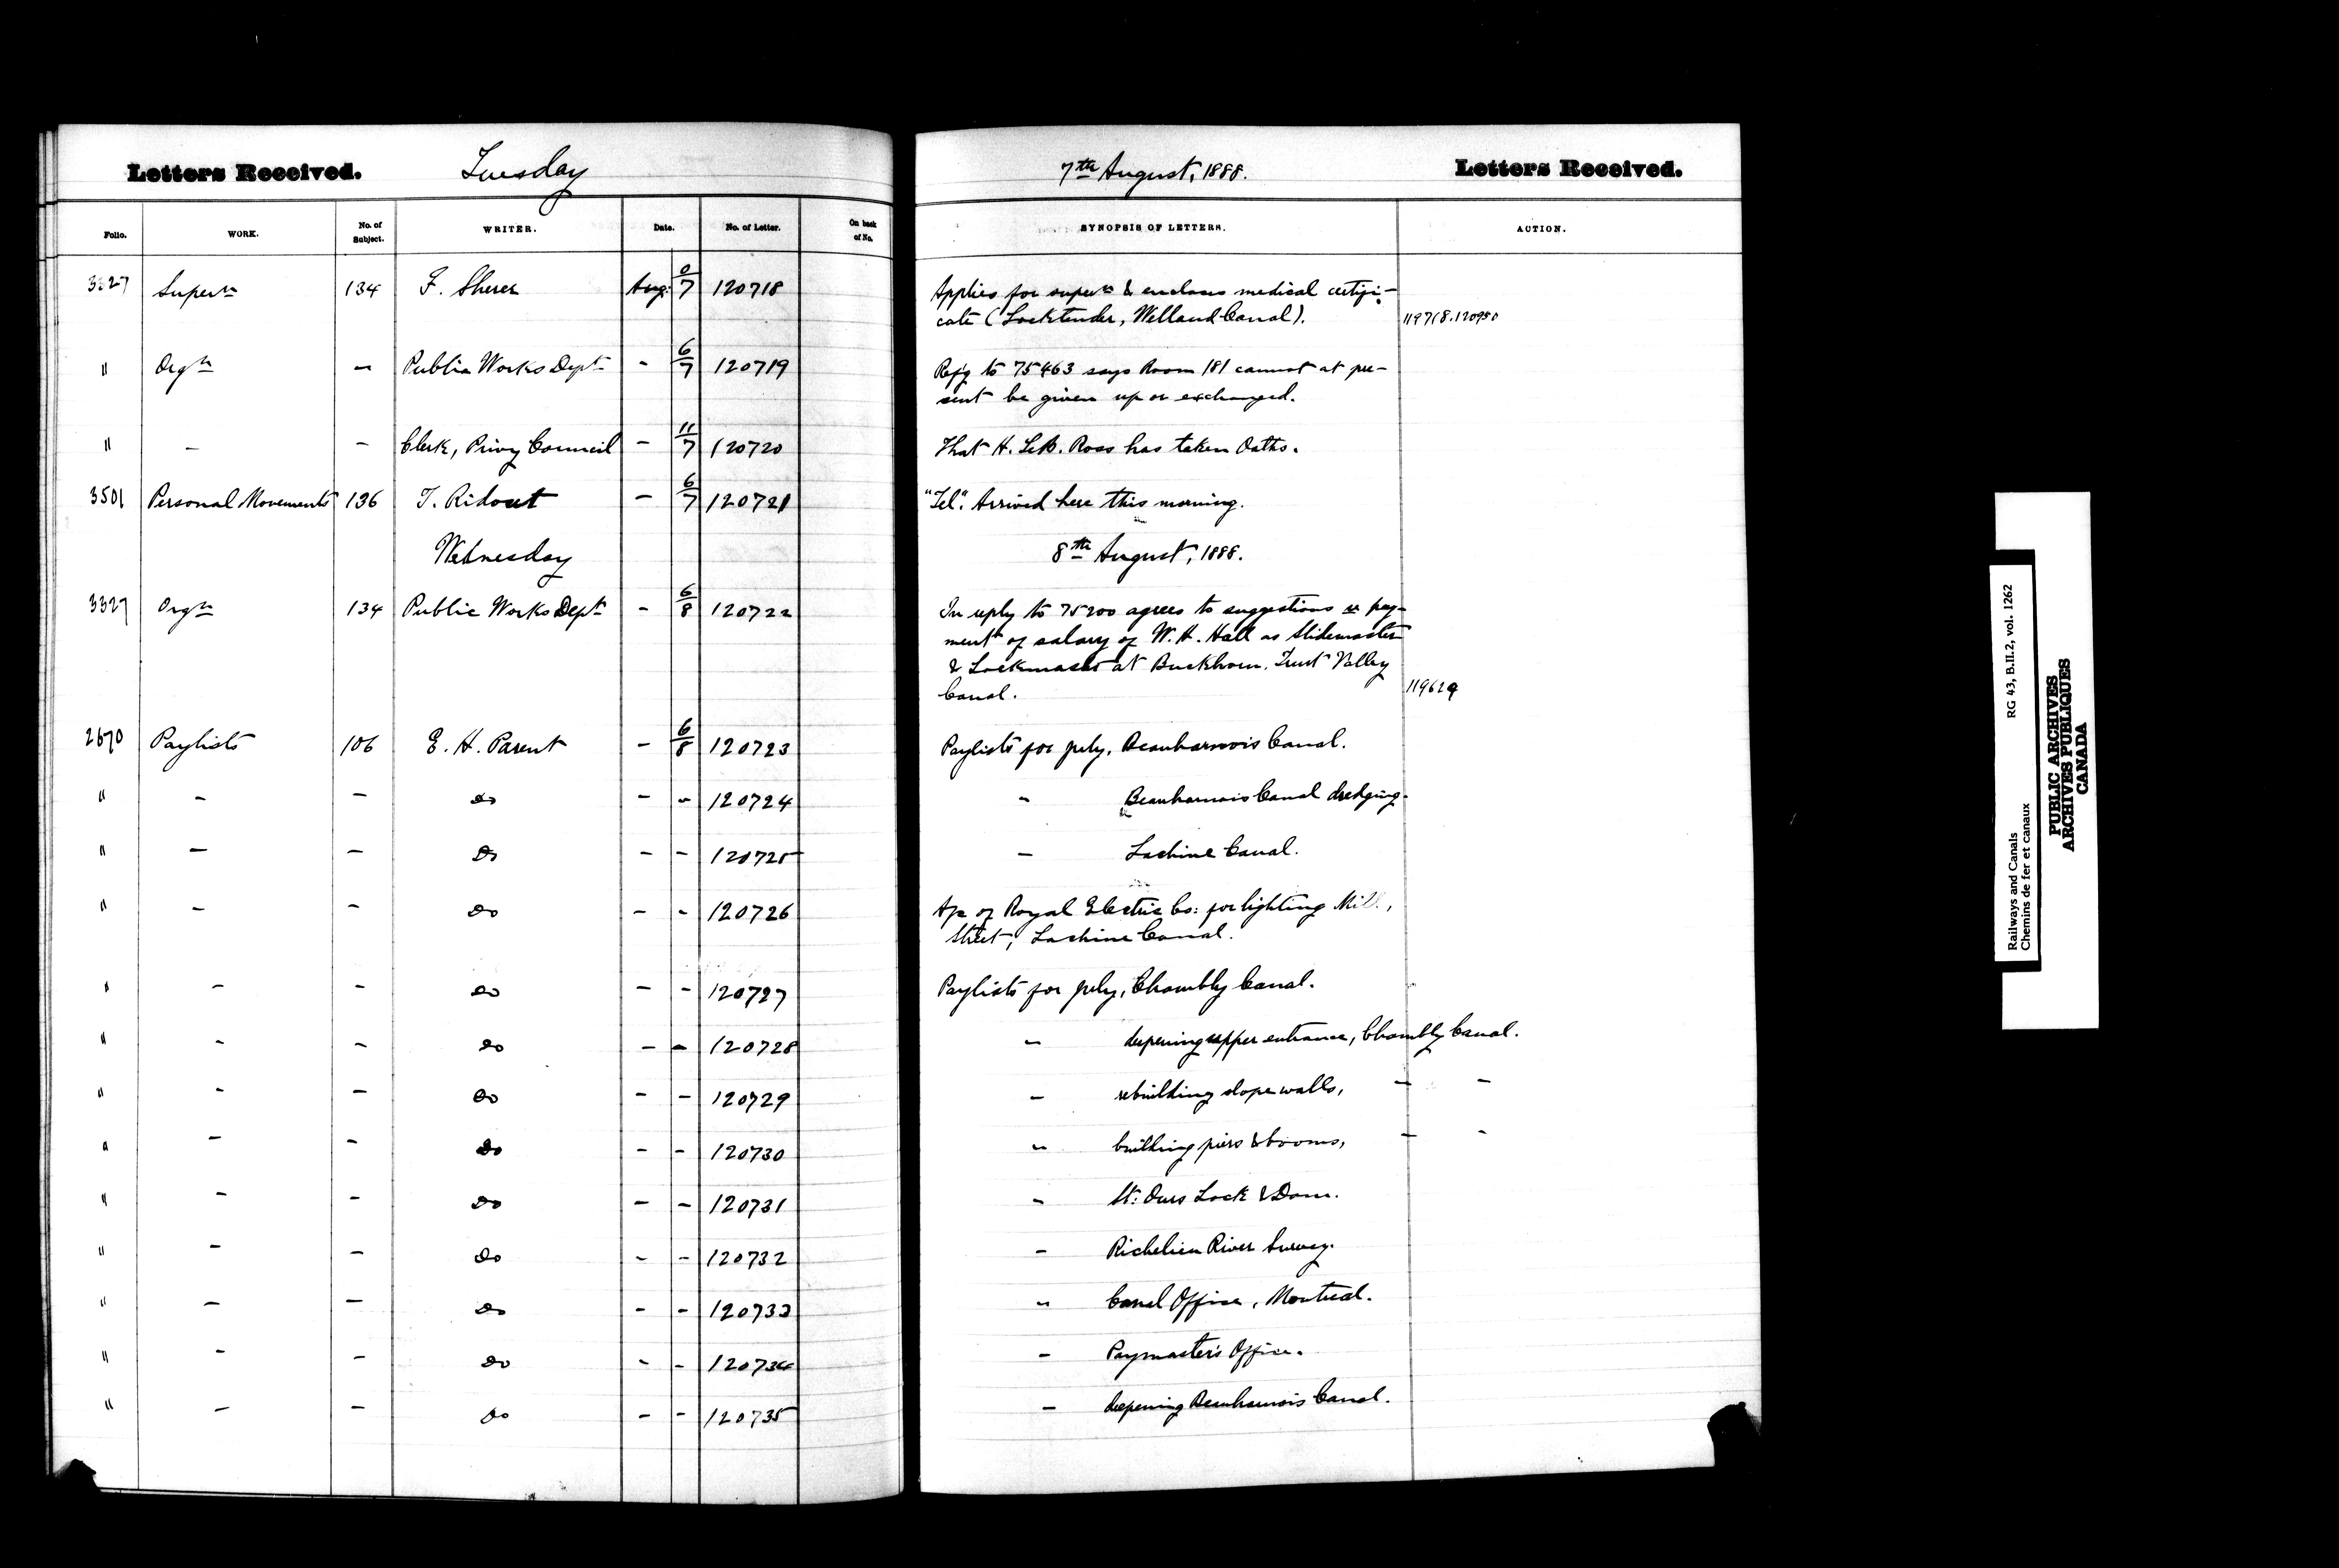 Letters Received. Tuesday 7th August, 1888. Letters Received.
Folio. WORK. No. of Subject. WRITER. Date. No. of Letter. On back of No. SYNOPSIS OF LETTERS. ACTION.
3327 Supern 134 F. Sherer Aug: 7 120718 Applies for supern & encloses medical certifi-
cate (Locktender, Welland Canal). 119718.120950
" Orgn - Public Works Dept - 6/7 120719 Refg to 75463 says Room 181 cannot at pre-
sent be given up or exchanged.
" - - Clerk, Privy Council - 11/7 120720 That H. LeB. Ross has taken Oaths.
3501 Personal Movements 136 T. Ridout - 6/7 120721 "Tel". Arrived here this morning.
Wednesday 8th August, 1888.
3327 Orgn 134 Public Works Dept - 6/8 120722 In reply to 75200 agrees to suggestions re pay-
ment of salary of W. H. Hall as Slidemaster
& Lockmaster at Buckhorn, Trent Valley
Canal. 119629
2670 Paylists 106 E. H. Parent - 6/8 120723 Paylists for july, Beauharnois Canal.
" - - do - - 120724 - Beauharnois Canal dredging.
" - - do - - 120725 - Lachine Canal.
" - - do - - 120726 A/c of Royal Electric Co: for lighting Mill
Street, Lachine Canal.
" - - do - - 120727 Paylists for july, Chambly Canal.
" - - do - - 120728 - deepening upper entrance, Chambly Canal.
" - - do - - 120729 - rebuilding slope walls, - -
" - - do - - 120730 - building piers & booms, - -
" - - do - - 120731 - St: Ours Lock & Dam.
" - - do - - 120732 - Richelieu River Survey.
" - - do - - 120733 - Canal Office, Montreal.
" - - do - - 120734 - Paymaster's Office.
" - - do - - 120735 - deepening Beauharnois Canal.
Railways and Canals RG 43, B.II.2, vol. 1262
Chemins de fer et canaux
PUBLIC ARCHIVES
ARCHIVES PUBLIQUES
CANADA